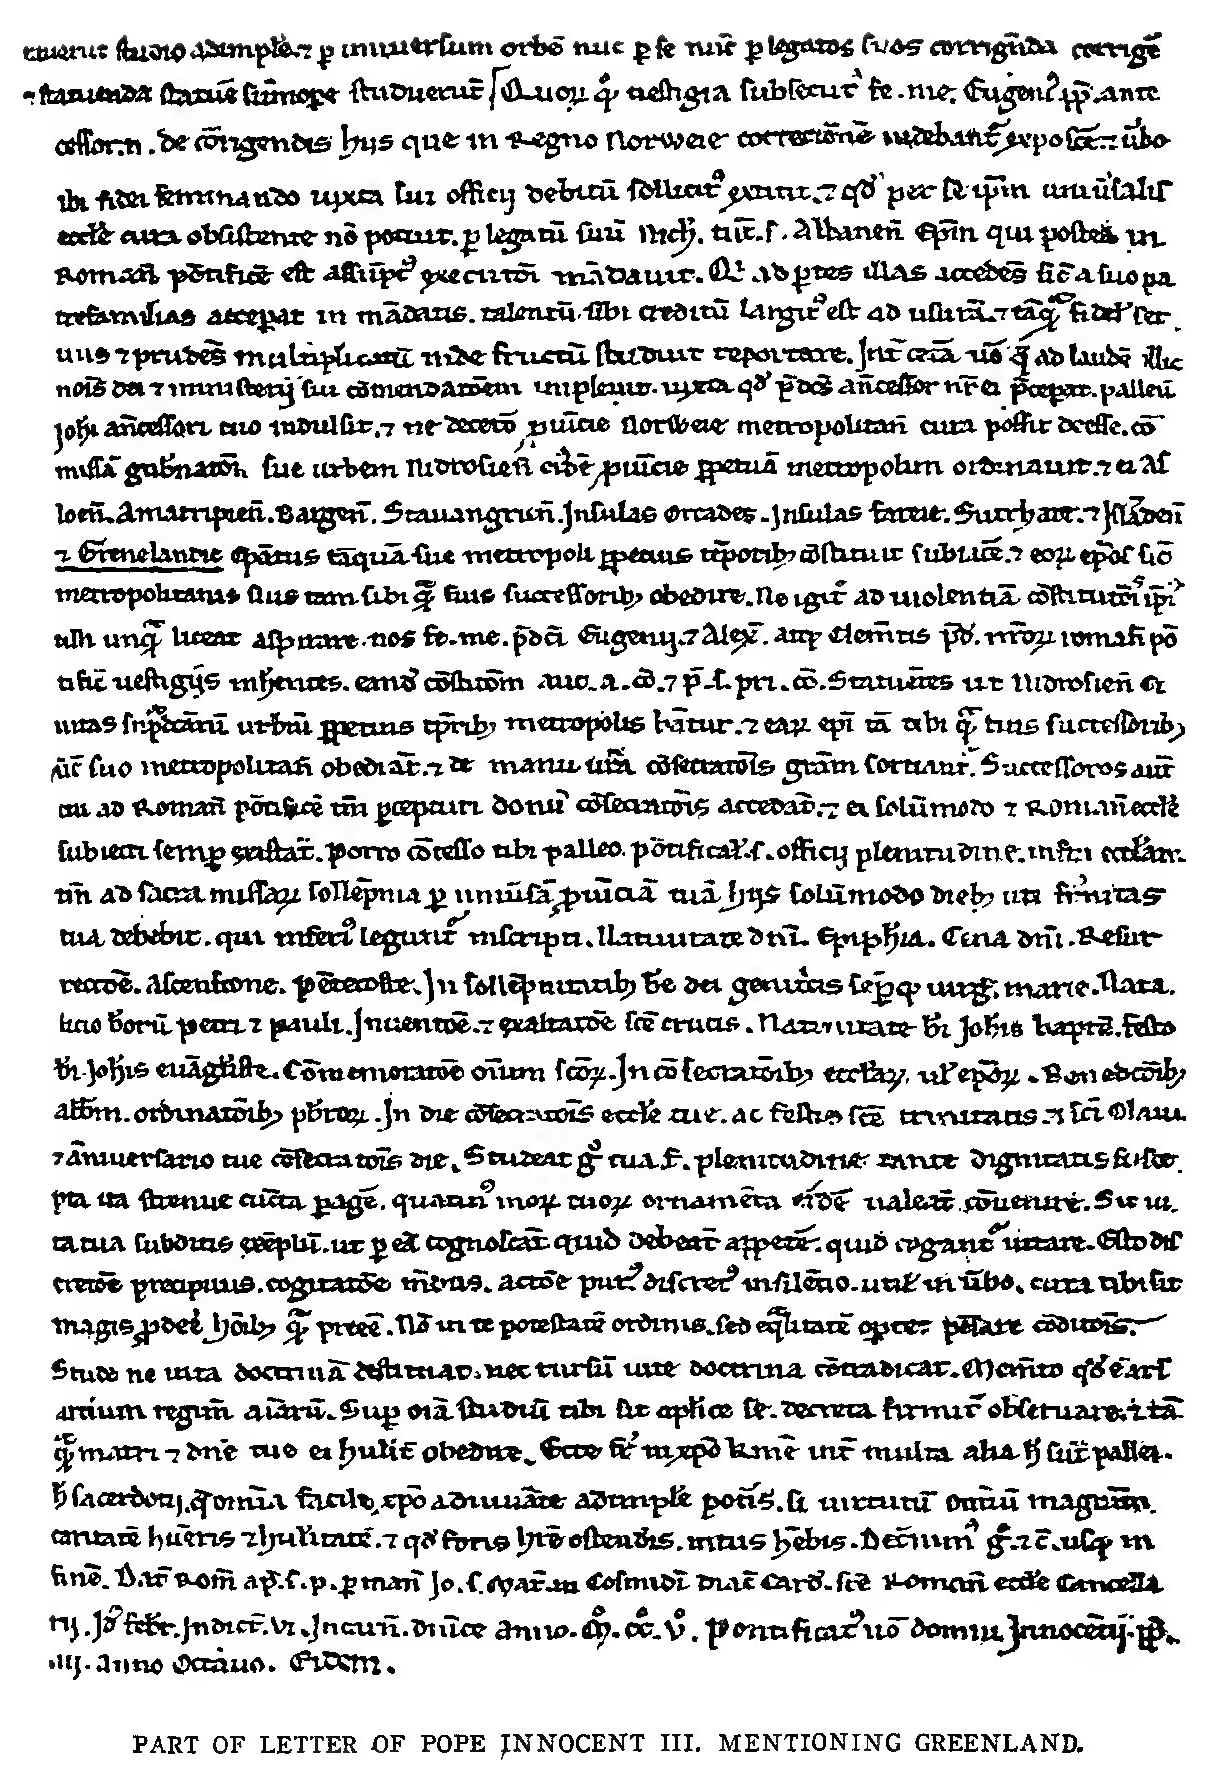 studio adimplēt ⁊ ꝑ uniuersum orbē nūc ꝑ se nūc ꝑ legatos suos corrigēda corrigē
⁊ statuenda statuē sūmope studuerūt Quoꝝ vestigia subsecut᷒ fe. me. Eugeni᷒ pp̄. ante
cessor. n. de cōrigendis hijs que in Regno Norweie correctionē videbant᷒ exposcē ⁊ ūbo
ibi fidei seminando iuxta sui officij debitū sollicit᷒ extitit. ⁊ qd̄ per se ip̄m uniūsalis
eccl̄e cura obsistente nō potuit. ꝑ legatū suū Nich. tūc. s. Albaneñ Ep̄m qui postea in
Romañ pōtificē est assūpt᷒ executōi mādauit. Qi ad ptes illas accedēs sic̄ a suo pa
trefamilias acceperat in mādatis. talentū sibi creditū largit᷒ est ad usurā. ⁊ tāqᷓ fidel᷒ ser
uus ⁊ prudēs multiplicatū inde fructū studuit reportare. Int̄ cet̄a uō q̄ ad laudē illic
nōis dei ⁊ ministerij sui cōmendatōem impleuit. iuxta qd̄ p̄dc̄s añcessor nr̄ ei p̄cepat. palleū
Johi añcessori tuo indulsit. ⁊ ne decet̄o ꝓuīcie Norweie metropolitañ cura possit deesse. cō
missā gub̄natōi sue urbem Nidrosieñ eīdē ꝓuīcie ꝑpetuā metropolim ordinauit. ⁊ ei As
loeñ. Amatripieñ. Bargeñ. Stauangrieñ. Insulas Orcades. Insulas fareie. Sutrhaie. ⁊ Islādeñ
⁊ Grenelandie Ep̄atus tāquā sue metropoli ꝑpetuis tēporibꝫ cōstituit subiacē. ⁊ eoꝝ ep̄os sic̄
metropolitanis suis tam sibi qᷓ suis successoribꝫ obedire. Ne igit᷒ ad uiolentiā cōstitutōis ip̄i᷒
ulli unqᷓ liceat aspirare. nos fe. me. p̄dc̄i Eugenij. ⁊ Alex̄. atqꝫ Clemētis p̄d. nr̄oꝝ romañ pō
tific̄ uestigijs inherētes. eand̄ cōstitutōm auc. a. cō. ⁊ p̄. s. pri. cō. Statuētes ut Nidrosieñ Ci
uitas sup̄dictarū urbiū ꝑpetuis tp̄ribꝫ metropolis habeātur. ⁊ eaꝝ ep̄i tā tibi qᷓ tuis successoribꝫ
sic̄ suo metropolitañ obediāt. ⁊ de manu ur̄a cōsecratōis grām sortiant᷒. Successores aūt
tui ad Romañ pōtificē tm̄ ꝑcepturi donū cōsecratōis accedāt. ⁊ ei solūmodo ⁊ Romañ eccl̄e
subiecti semꝑ existāt. Porro cōcesso tibi palleo. pōtifical᷒. s. officij plenitudine. infra eccl̄iam.
tm̄ ad sacra missaꝝ sollēpnia ꝑ uniūsā ꝓuīciā tuā hijs solūmodo diebꝫ uti frn̄itas
tua debebit. qui inferi᷒ legunt᷒ inscripti. Natiuitate dnī. Epiphīa. Cena dnī. Resur
rectōe. Ascensione. Pētecoste. In sollēpnitatibꝫ bē dei genit͛cis semꝑqꝫ uirg. marie. Nata.
licio bt̄orū petri ⁊ pauli. Inuentōe. ⁊ exaltatōe sc̄e crucis. Natiuitate bt̄i Johis bapte. festo
bt̄i Johis euāgliste. Cōmemoratōe oīum sc̄oꝝ. In cōsecratōibꝫ eccl̄aꝝ. ul᷒ ep̄oꝝ. Benedicōibꝫ
abb̄m. ordinatōibꝫ pbr̄oꝝ. In die cōsecratōis eccl̄e tue. ac festis sc̄e trinitatis. ⁊ sc̄i Olaui.
⁊ āniuersario tue cōsecratōis die. Studeat g᷒ tua f. plenitudine tante dignitatis susce
pta ita strenue cūcta ꝑagē. quatin᷒ moꝝ tuoꝝ ornamēta eidē ualeāt cōuenire. Sit ui.
ta tua subditis exēplū. ut ꝑ eā cognoscāt quid debeāt appetē. quid cogant᷒ uitare. Esto dis
cretōe precipuus. cogitatōe mūdus. actōe pur᷒. discret᷒ in silētio. util᷒ in ūbo. cura tibi sit
magis ꝓdeē hoībꝫ qᷓ preeē. Nō in te potestatē ordinis. sed eqᷓlitatē oportet pēsare cōditōis.
Stude ne uita doctrinā destituat. nec rursū uite doctrina cōtradicat. Memēto qd̄ ē ars
artium regimē aīarū. Suꝑ oīa studiū tibi sit aplice se. decreta firmit᷒ obseruare. ⁊ tā
qᷓ matri ⁊ dn̄e tue ei hulit᷒ obedire. Ecce fr̄ in xp̄o kmē int̄ multa alia h̄ sūt pallei.
h̄ sacerdotij. q̄ omīa facile xp̄o adiuuāte adimplē potis. si uirtutū omīū magistram
caritatē hueris ⁊ hulitatē. ⁊ qd̄ foris hr̄e ostendis. intus hēbis. Decnim᷒ g᷒. ⁊ c̄. usqꝫ in
finē. Dat᷒ Rom̄ ap̄. s. p. ꝑ mañ Jo. s. Mar̄. in Cosmidī diac̄ Card. sc̄e Romañ eccl̄e Cancella
rij. Id᷒ febr̄. Indict̄. vi. Incarñ. dnīce Anno. M̊. CC̊. V̊. Pontificat᷒ uō domini Innocētij. pp̄.
.iij. anno Octauo. Eidem.
PART OF LETTER OF POPE INNOCENT III. MENTIONING GREENLAND.